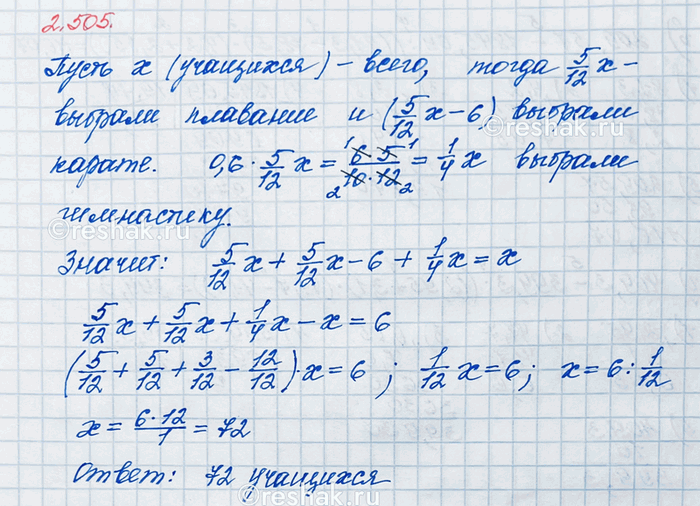 2.505.
Пусть x (учащихся) – всего, тогда 5/12 x –
выбрали плавание и (5/12 x – 6) выбрали
карате. 0,6 · 5/12 x = 6·5/10·12 = 1/4 x выбрали
гимнастику.
Значит: 5/12 x + 5/12 x – 6 + 1/4 x = x
5/12 x + 5/12 x + 1/4 x – x = 6
(5/12 + 5/12 + 3/12 – 12/12) · x = 6 ; 1/12 x = 6; x = 6 : 1/12
x = 6·12/1 = 72
Ответ: 72 учащихся
©reshak.ru
©reshak.ru
©reshak.ru